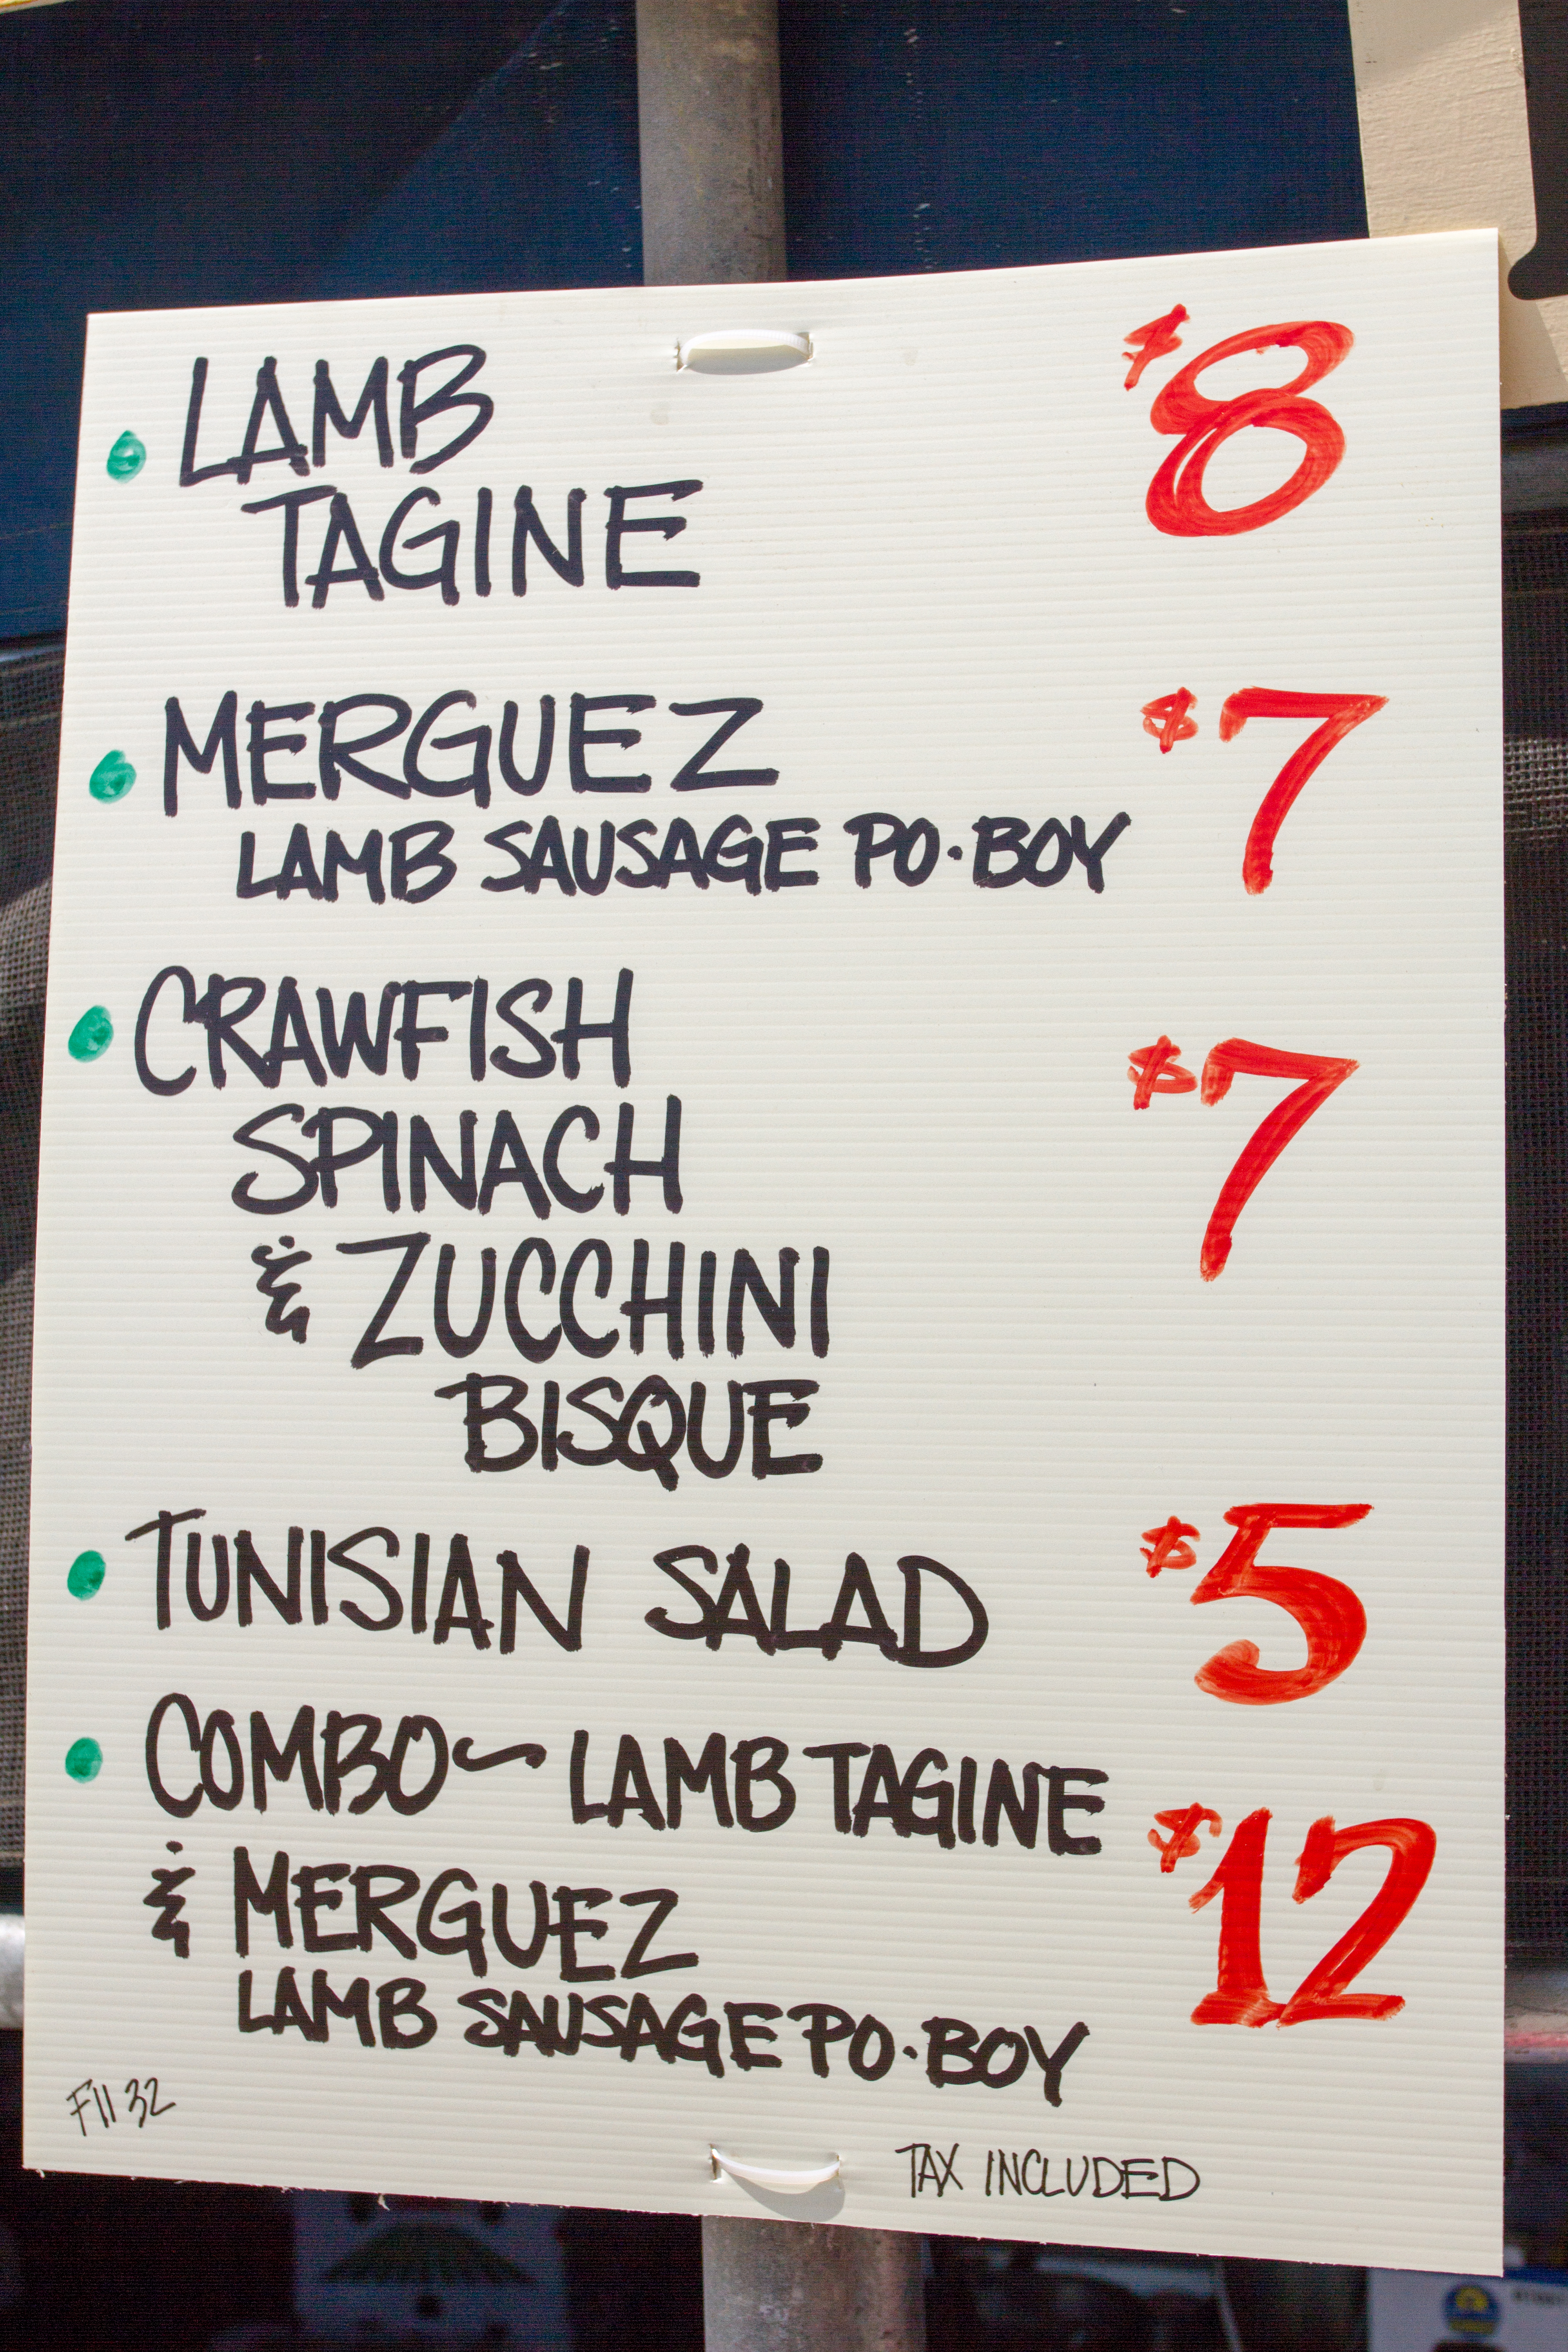 LAMB $8
TAGINE
MERGUEZ $7
LAMB SAUSAGE PO·BOY
CRAWFISH $7
SPINACH
& ZUCCHINI
BISQUE
TUNISIAN SALAD $5
COMBO~ LAMB TAGINE $12
& MERGUEZ
LAMB SAUSAGE PO·BOY
F11 32
TAX INCLUDED